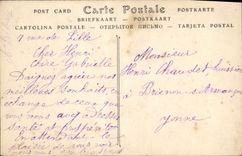 POST CARD Carte Postale POSTKARTE
BRIEFKAART
CARTOLINA POSTALE ОТКРЫТОЕ ПИСЬМО TARJETA POSTAL
7 rue de Lille
Cher Henri
Chère Gabrielle
Daignez agréer nos
meilleurs souhaits en
échange de ceux que
vous nous avez
santé et
En attendant le
plaisir de vous voir
Monsieur
Henri Chaudet,
à Brienon s Armançon
Yonne